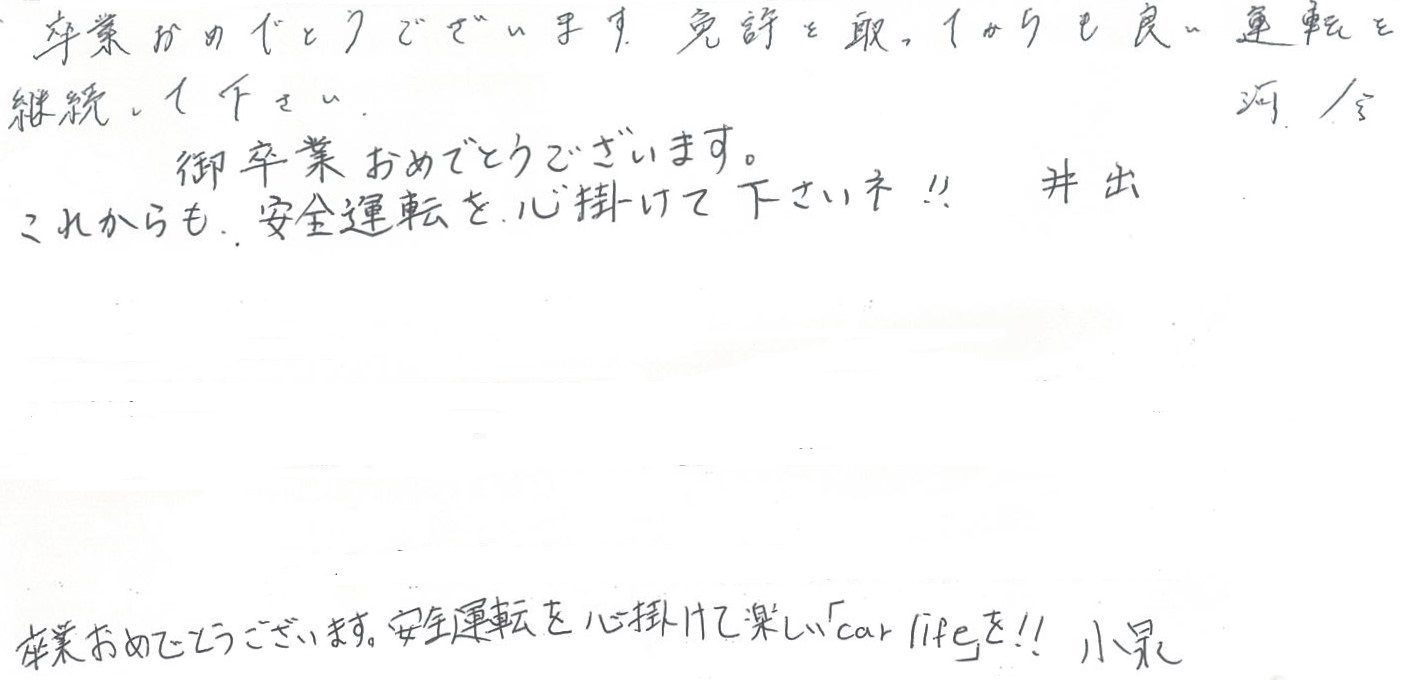 卒業おめでとうございます。免許を取ってからも良い運転を
継続して下さい。 河
御卒業おめでとうございます。
これからも、安全運転を心掛けて下さいネ!! 井出
卒業おめでとうございます。安全運転を心掛けて楽しい「car life」を!! 小泉